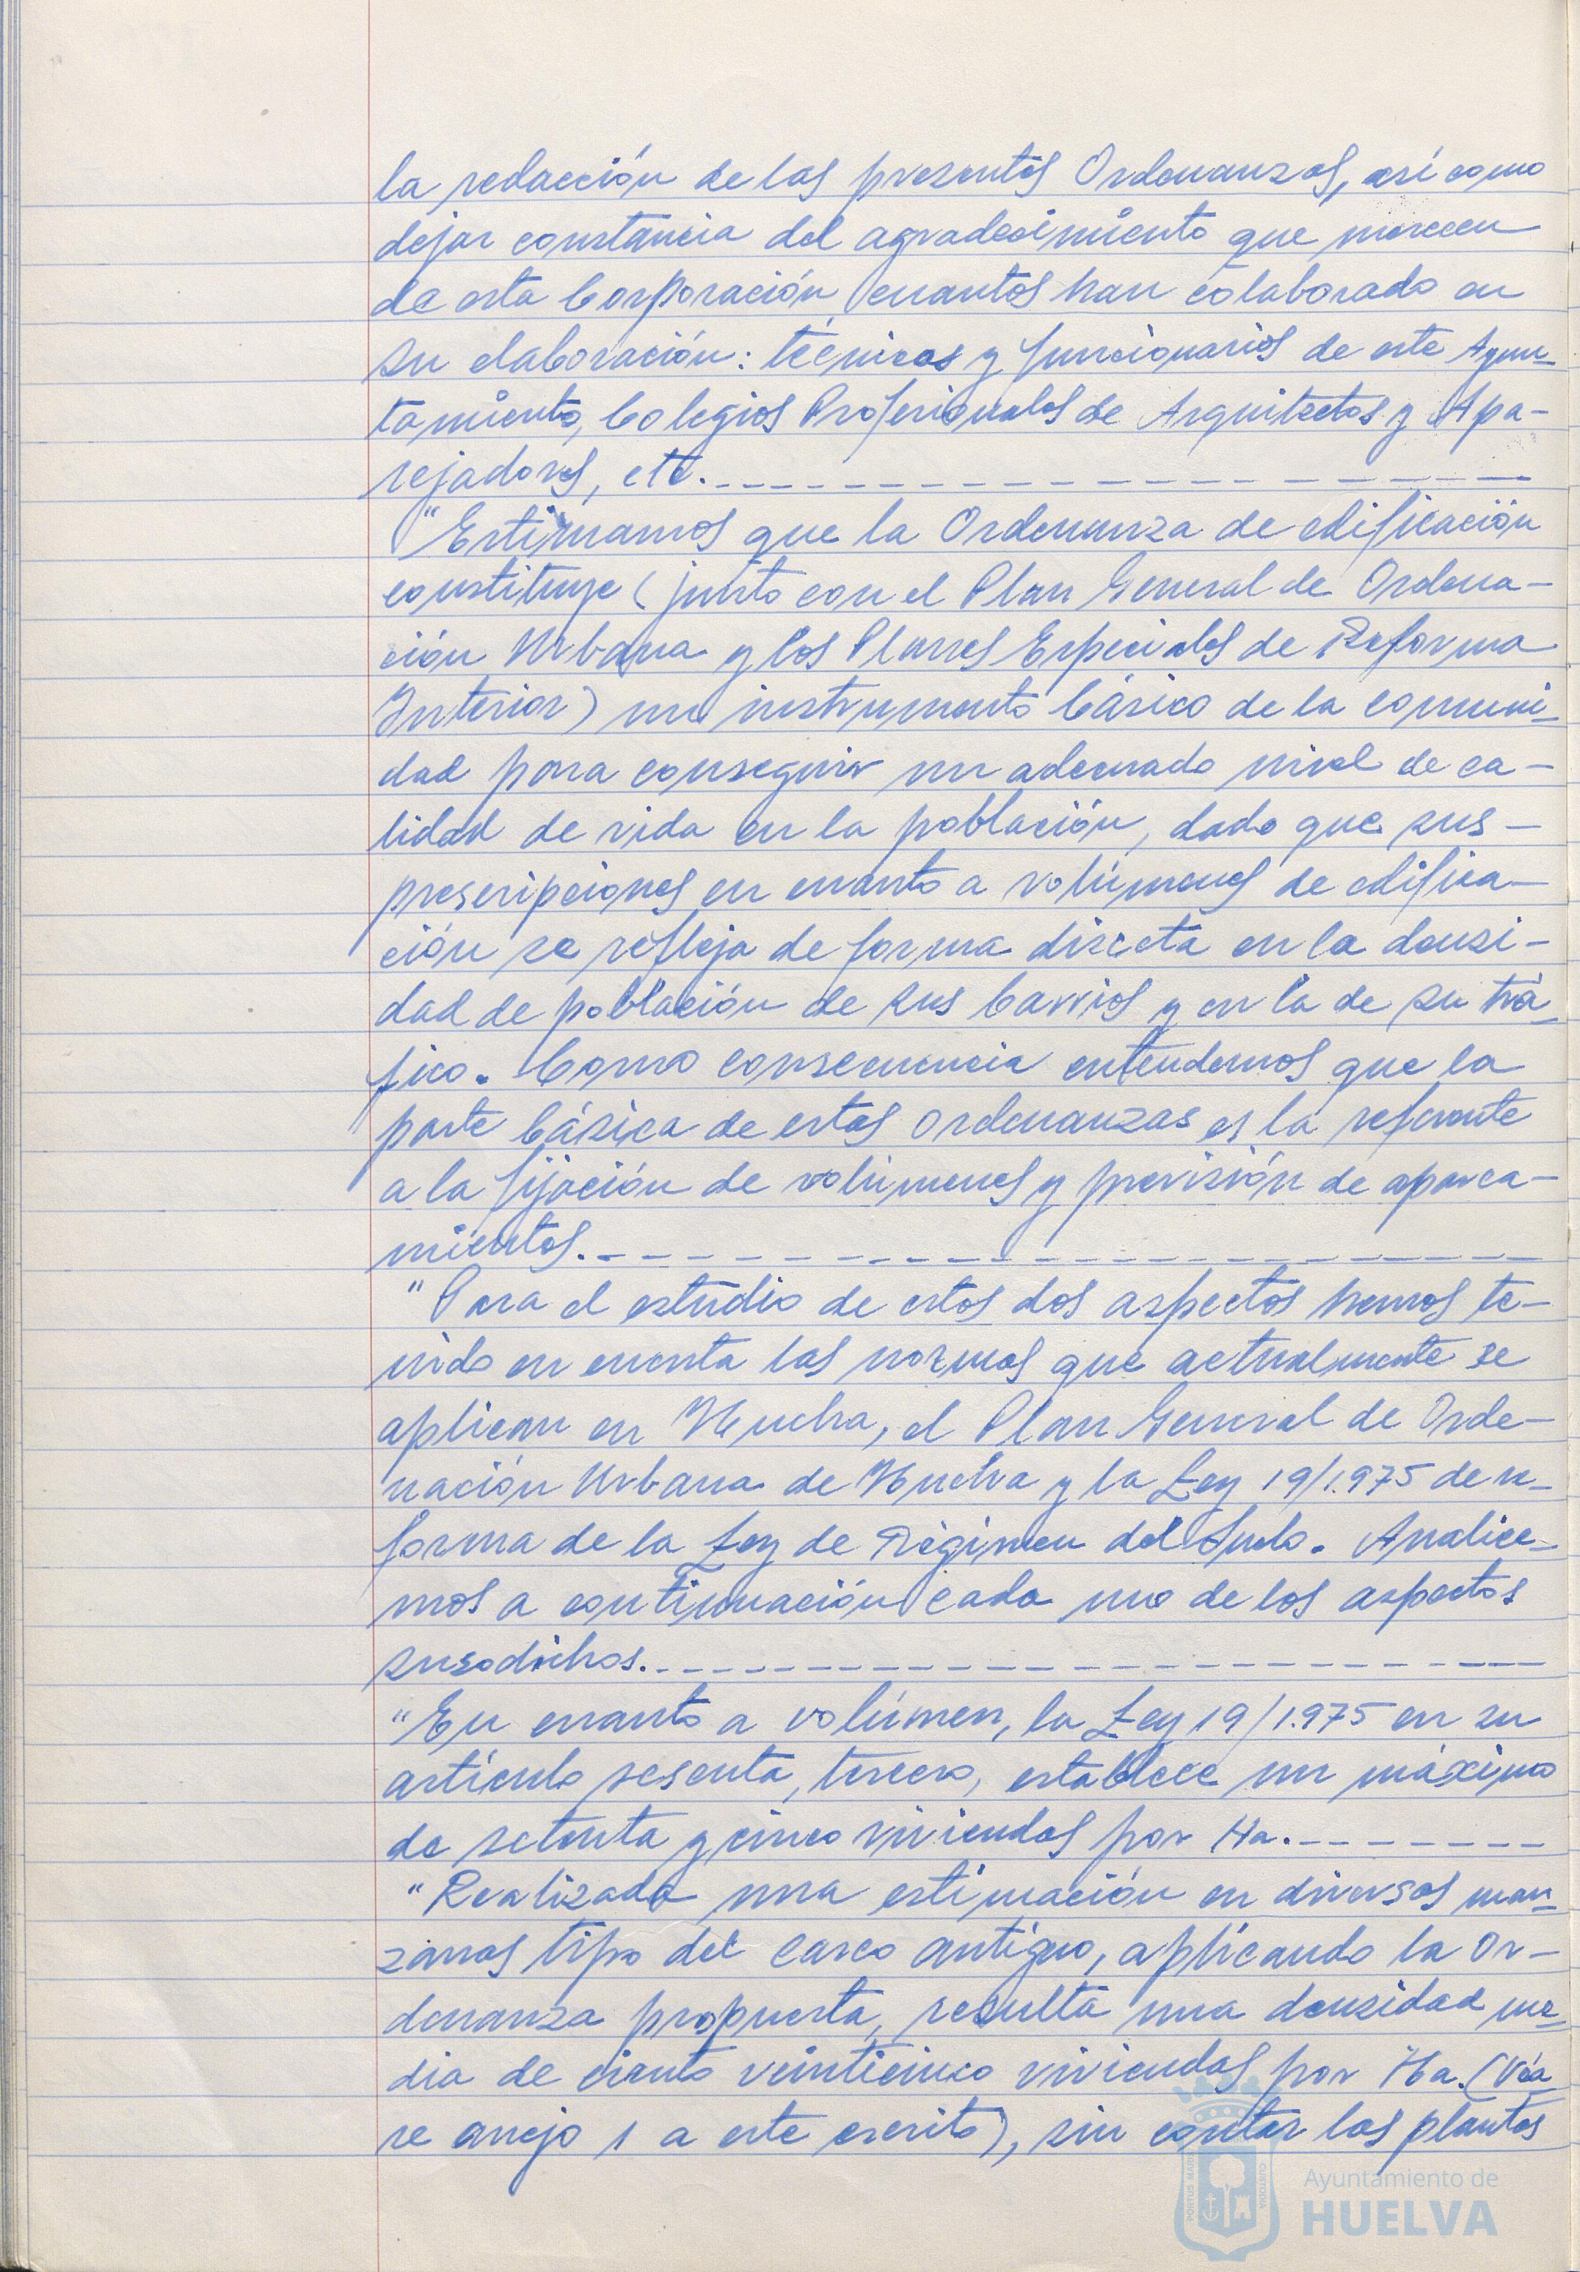 la redacción de las presentes Ordenanzas, así como
dejar constancia del agradecimiento que merecen
de esta Corporación cuantos han colaborado en
su elaboración: técnicos y funcionarios de este Ayun-
tamiento, Colegios Profesionales de Arquitectos y Apa-
rejadores, etc.
"Estimamos que la Ordenanza de edificación
constituye (junto con el Plan General de Ordena-
ción Urbana y los Planes Especiales de Reforma
Interior) un instrumento básico de la comuni-
dad para conseguir un adecuado nivel de ca-
lidad de vida en la población, dado que sus -
prescripciones en cuanto a volúmenes de edifica-
ción se refleja de forma directa en la densi-
dad de población de sus barrios y en la de su trá-
fico. Como consecuencia entendemos que la
parte básica de estas Ordenanzas es la referente
a la fijación de volúmenes y previsión de aparca-
mientos.
"Para el estudio de estos dos aspectos hemos te-
nido en cuenta las normas que actualmente se
aplican en Huelva, el Plan General de Orde-
nación Urbana de Huelva y la Ley 19/1.975 de re-
forma de la Ley de Régimen del Suelo. Analice-
mos a continuación cada uno de los aspectos
susodichos.
"En cuanto a volúmen, la Ley 19/1.975 en su
artículo sesenta, tercero, establece un máximo
de setenta y cinco viviendas por Ha.
"Realizada una estimación en diversas man-
zanas tipo del casco antiguo, aplicando la Or-
denanza propuesta, resulta una densidad me-
dia de ciento veinticinco viviendas por Ha. (Véa-
se anejo 1 a este escrito), sin contar las plantas
PORTUS MARIS
CUSTODIA
Ayuntamiento de
HUELVA